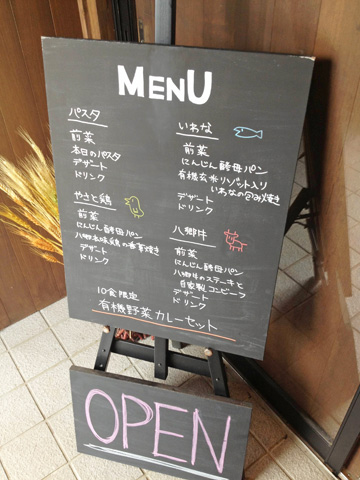 MENU
パスタ
前菜
本日のパスタ
デザート
ドリンク
やさと鶏
前菜
にんじん酵母パン
八郷本味鶏の香草焼き
デザート
ドリンク
いわな
前菜
にんじん酵母パン
有機玄米リゾット入り
いわなの包み焼き
デザート
ドリンク
八郷牛
前菜
にんじん酵母パン
八郷牛のステーキと
自家製コンビーフ
デザート
ドリンク
10食限定
有機野菜カレーセット
OPEN